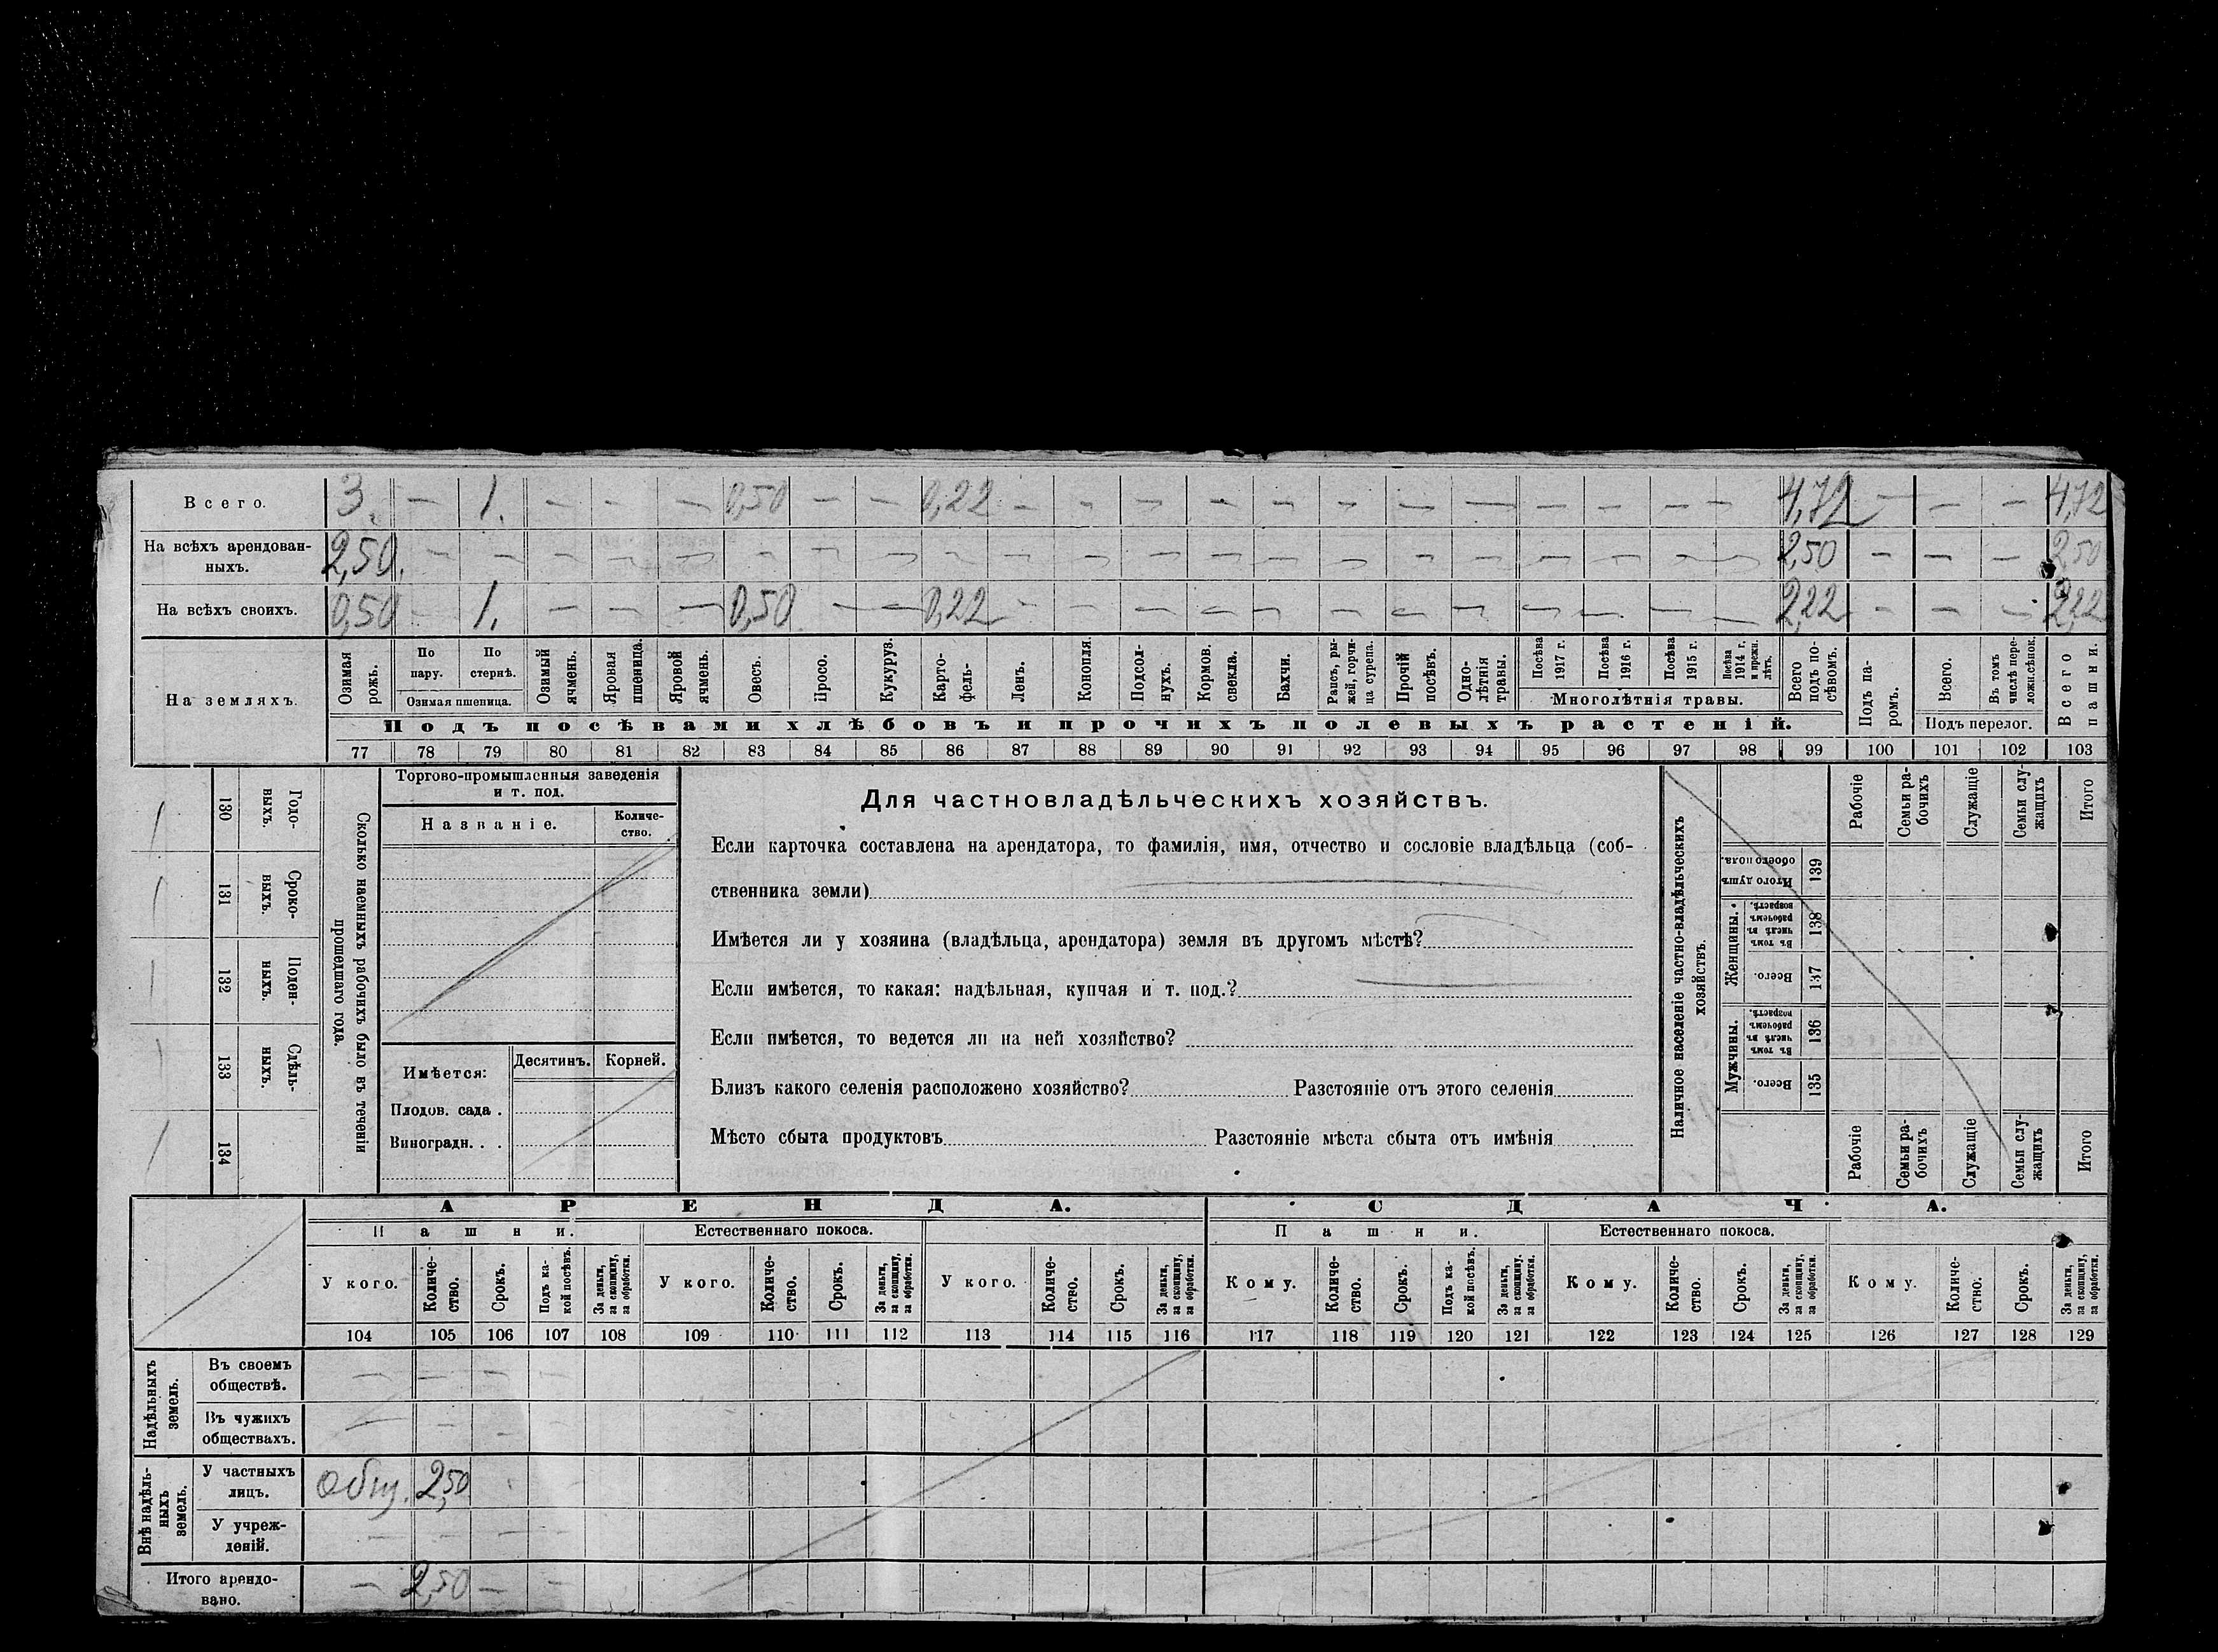 Всего. 3. — 1. — — — 0,50 — — 0,22 — — — — — — — — — — — — 4,72 — — — 4,72
На всѣхъ арендован-
ныхъ. 2,50. — — — — — — — — — — — — — — — — — — — — — 2,50 — — — 2,50
На всѣхъ своихъ. 0,50 — 1. — — — 0,50 — — 0,22 — — — — — — — — — — — — 2,22 — — — 2,22
На земляхъ.
Озимая рожь.
По пару.
По стернѣ.
Озимая пшеница.
Озимый ячмень.
Яровая пшеница.
Яровой ячмень.
Овесъ.
Просо.
Кукуруз.
Карто-
фель.
Ленъ.
Конопля.
Подсол-
нухъ.
Кормов.
свекла.
Бахчи.
Рапсъ, ры-
жей, горчи-
ца сурепа.
Прочій
посѣвъ.
Одно-
лѣтнія
травы.
Посѣва
1917 г.
Посѣва
1916 г.
Посѣва
1915 г.
Посѣва
1914 г.
и прежн.
лѣтъ.
Многолѣтнія травы.
Всего
подъ по-
сѣвомъ.
Подъ па-
ромъ.
Всего.
Въ томъ
числѣ пере-
ложн.сѣнок.
Подъ перелог.
Всего
пашни.
Подъ посѣвами хлѣбовъ и прочихъ полевыхъ растеній.
77 78 79 80 81 82 83 84 85 86 87 88 89 90 91 92 93 94 95 96 97 98 99 100 101 102 103
Годо-
выхъ.
130
Сроко-
выхъ.
131
Поден-
ныхъ.
132
Сдѣль-
ныхъ.
133
134
Сколько наемныхъ рабочихъ было въ теченіи
прошедшаго года.
Торгово-промышленныя заведенія
и т. под.
Названіе.
Количе-
ство.
Имѣется:
Десятинъ.
Корней.
Плодов. сада .
Виноградн. . .
Для частновладѣльческихъ хозяйствъ.
Если карточка составлена на арендатора, то фамилія, имя, отчество и сословіе владѣльца (соб-
ственника земли)
Имѣется ли у хозяина (владѣльца, арендатора) земля въ другомъ мѣстѣ?
Если имѣется, то какая: надѣльная, купчая и т. под.?
Если имѣется, то ведется ли на ней хозяйство?
Близъ какого селенія расположено хозяйство? Разстояніе отъ этого селенія
Мѣсто сбыта продуктовъ Разстояніе мѣста сбыта отъ имѣнія
Наличное населеніе частно-владѣльческихъ
хозяйствъ.
Итого душъ
обоего пола.
139
Женщины.
Въ томъ
числѣ въ
рабочемъ
возрастѣ.
138
Всего.
137
Мужчины.
Въ томъ
числѣ въ
рабочемъ
возрастѣ.
136
Всего.
135
Рабочіе
Семьи ра-
бочихъ
Служащіе
Семьи слу-
жащихъ
Итого
Рабочіе
Семьи ра-
бочихъ
Служащіе
Семьи слу-
жащихъ
Итого
АРЕНДА. СДАЧА.
Пашни. Естественнаго покоса. Пашни. Естественнаго покоса.
У кого.
Количе-
ство.
Срокъ.
Подъ ка-
кой посѣвъ.
За деньги,
за скопщину,
за обработки.
У кого.
Количе-
ство.
Срокъ.
За деньги,
за скопщину,
за обработки.
У кого.
Количе-
ство.
Срокъ.
За деньги,
за скопщину,
за обработки.
Кому.
Количе-
ство.
Срокъ.
Подъ ка-
кой посѣвъ.
За деньги,
за скопщину,
за обработки.
Кому.
Количе-
ство.
Срокъ.
За деньги,
за скопщину,
за обработки.
Кому.
Количе-
ство.
Срокъ.
За деньги,
за скопщину,
за обработки.
104 105 106 107 108 109 110 111 112 113 114 115 116 117 118 119 120 121 122 123 124 125 126 127 128 129
Надѣльныхъ
земель.
Въ своемъ
обществѣ. — — — —
Въ чужихъ
обществахъ. — — —
Внѣ надѣль-
ныхъ
земель.
У частныхъ
лицъ. Общ. 2,50
У учреж-
деній. — — — —
Итого арендо-
вано. — 2,50 — —